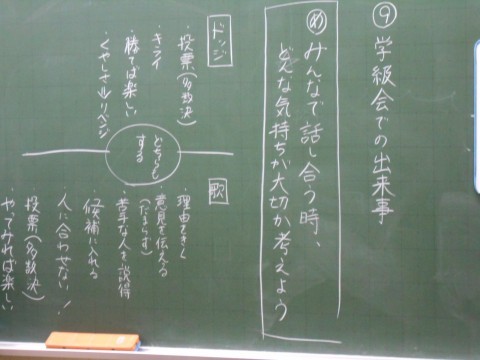 ⑨ 学級会での出来事
め みんなで話し合う時、
どんな気持ちが大切か考えよう
ドッジ
・投票(多数決)
・キライ
・勝てば楽しい
・くやしさ→リベンジ
どちらも
する
歌
・理由をきく
・意見を伝える
(だまらず)
・苦手な人を説得
・候補に入れる
・人に合わせない!
・投票(多数決)
・やってみれば楽しい